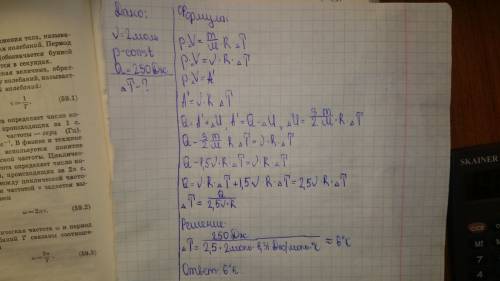 Дано:
ν=2моль
p-const
Q=250Дж
ΔT-?
Формула:
p·V=m/M·R·ΔT
p·V=ν·R·ΔT
p·V=A'
A'=ν·R·ΔT
Q=A'+ΔU, A'=Q-ΔU, ΔU=3/2 m/M·R·ΔT
Q-3/2 m/M·R·ΔT=ν·R·ΔT
Q-1,5ν·R·ΔT=ν·R·ΔT
Q=ν·R·ΔT+1,5ν·R·ΔT=2,5ν·R·ΔT
ΔT=Q/2,5ν·R
Решение:
ΔT=250Дж/2,5·2моль·8,31Дж/моль·К≈6°К
Ответ: 6°К
жения тела, называ-
к колебаний. Период
обозначается буквой
тся в секундах.
колебаний, называет-
колебаний:
(59.1)
та определяет число ко-
происходящих за 1 с.
частоты — герц (Гц).
В физике и технике
используется понятие
частоты. Цикличес-
определяет число ко-
происходящих за 2π с.
между циклической часто-
частотой ν задается выра-
ω=2πν.
(59.2)
ческая частота ω и период
баний T связаны соотноше-
(59.3)
SKAINER